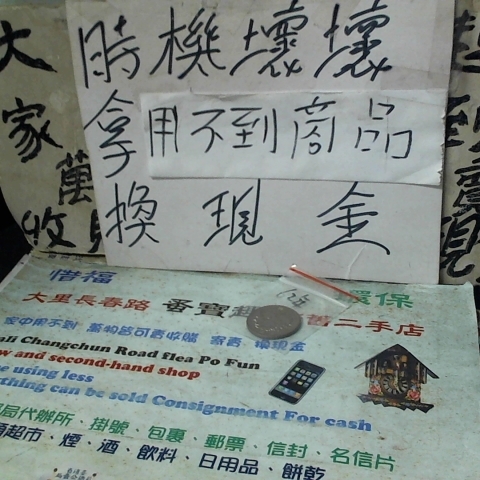 時機壞壞
拿用不到商品
換現金
大
家
萬
收
到
賣
現
惜福
環保
大里長春路 番寶超 舊二手店
家中用不到 萬物皆可書收購 寄賣 換現金
ali Changchun Road flea Po Fun
w and second-hand shop
e using less
thing can be sold Consignment For cash
局代辦所、掛號、包裹、郵票、信封、名信片
超市、煙、酒、飲料、日用品、餅乾